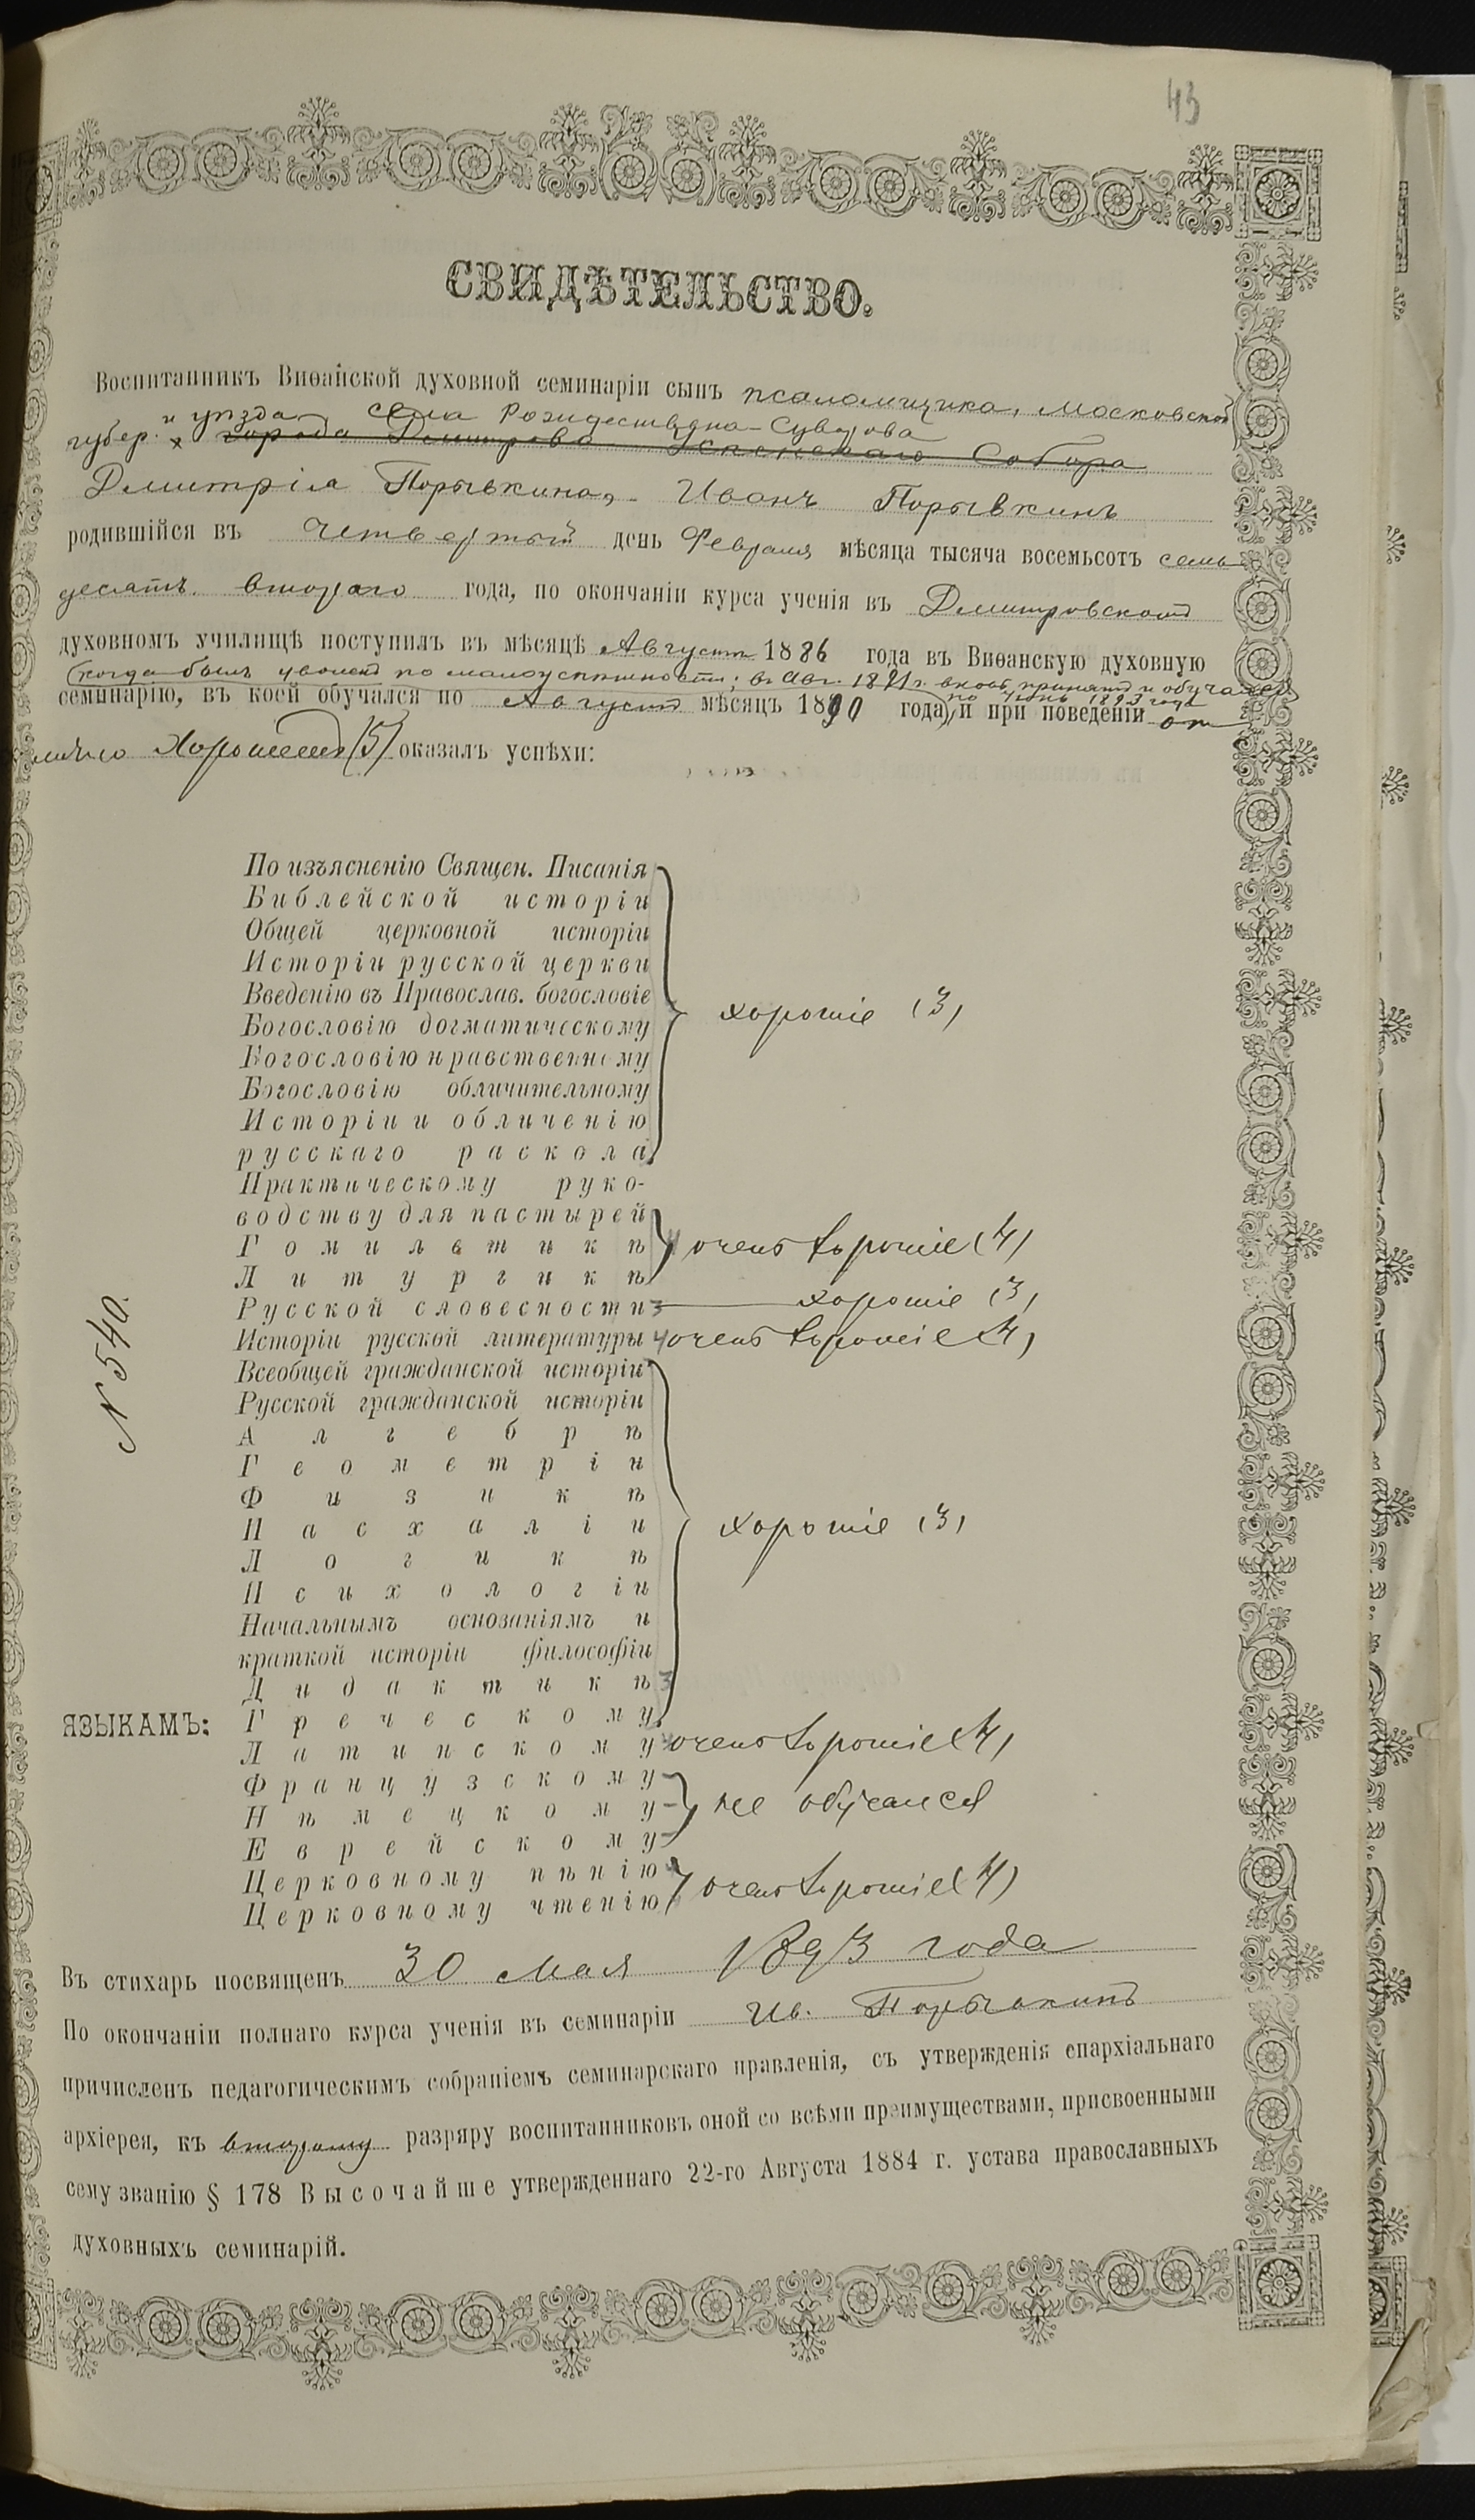 43
СВИДѢТЕЛЬСТВО.
Воспитанникъ Виѳайской духовной семинаріи сынъ псаломщика, Московской
губер. и уѣзда села Рождествена-Суворова
города Дмитрова Успенскаго Собора
Дмитрія Порывкина, Иванъ Порывкинъ
родившійся въ четвертый день Февраля мѣсяца тысяча восемьсотъ семь
десятъ втораго года, по окончаніи курса ученія въ Дмитровскомъ
духовномъ училищѣ поступилъ въ мѣсяцѣ Августѣ 1886 года въ Виѳанскую духовную
(когда былъ уволенъ по малоуспѣшности; въ Авг. 1891 г. вновь принятъ и обучался
по Іюнь 1893 года
семинарію, въ коей обучался по Августъ мѣсяцъ 1890 года), и при поведеніи от
лично хорошемъ (5) оказалъ успѣхи:
По изъясненію Священ. Писанія
Библейской исторіи
Общей церковной исторіи
Исторіи русской церкви
Введенію въ Православ. богословіе
хорошіе (3)
Богословію догматическому
Богословію нравственному
Богословію обличительному
Исторіи и обличенію
русскаго раскола
Практическому руко-
водству для пастырей
Гомилетикѣ очень хорошіе (4)
Литургикѣ
Русской словесности 3 хорошіе (3)
Исторіи русской литературы 4 очень хорошіе (4)
Всеобщей гражданской исторіи
Русской гражданской исторіи
Алгебрѣ
Геометріи
Физикѣ
Пасхаліи хорошіе (3)
Логикѣ
Психологіи
Начальнымъ основаніямъ и
краткой исторіи философіи
Дидактикѣ 3
ЯЗЫКАМЪ: Греческому
Латинскому очень хорошіе (4)
Французскому
Нѣмецкому не обучался
Еврейскому
Церковному пѣнію
Церковному чтенію очень хорошіе (4)
N 540.
Въ стихарь посвященъ 30 Мая 1893 года
По окончаніи полнаго курса ученія въ семинаріи Ив. Порывкинъ
причисленъ педагогическимъ собраніемъ семинарскаго правленія, съ утвержденія епархіальнаго
архіерея, къ второму разряру воспитанниковъ оной со всѣми преимуществами, присвоенными
сему званію § 178 Высочайше утвержденнаго 22-го Августа 1884 г. устава православныхъ
духовныхъ семинарій.